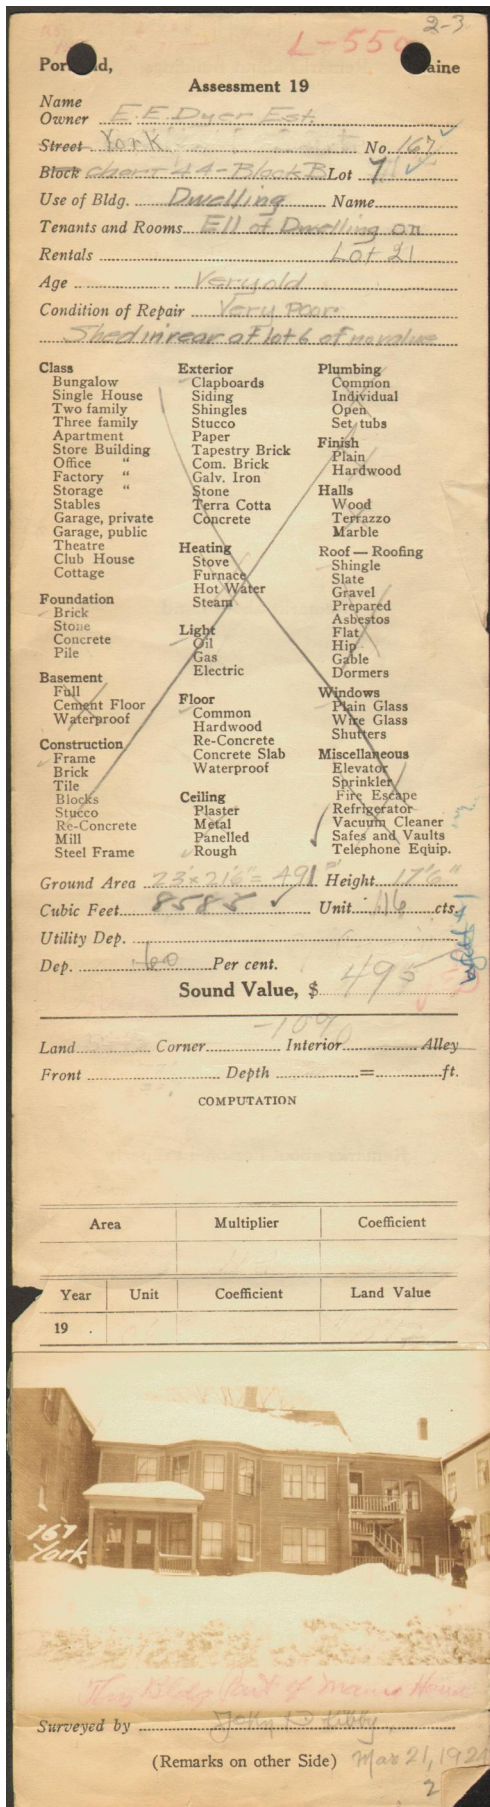 2-3
L-550
Portland, Maine
Assessment 19
Name
Owner E.E. Dyer Est.
Street York No. 167
Block Chart 44-Block B Lot 7
Use of Bldg. Dwelling Name
Tenants and Rooms Ell of Dwelling on
Rentals Lot 21
Age Very old
Condition of Repair Very Poor
Shed in rear of lot 6 of no value
Class
Bungalow
Single House
Two family
Three family
Apartment
Store Building
Office "
Factory "
Storage "
Stables
Garage, private
Garage, public
Theatre
Club House
Cottage
Foundation
Brick
Stone
Concrete
Pile
Basement
Full
Cement Floor
Waterproof
Construction
Frame
Brick
Tile
Blocks
Stucco
Re-Concrete
Mill
Steel Frame
Exterior
Clapboards
Siding
Shingles
Stucco
Paper
Tapestry Brick
Com. Brick
Galv. Iron
Stone
Terra Cotta
Concrete
Heating
Stove
Furnace
Hot Water
Steam
Light
Oil
Gas
Electric
Floor
Common
Hardwood
Re-Concrete
Concrete Slab
Waterproof
Ceiling
Plaster
Metal
Panelled
Rough
Plumbing
Common
Individual
Open
Set tubs
Finish
Plain
Hardwood
Halls
Wood
Terrazzo
Marble
Roof — Roofing
Shingle
Slate
Gravel
Prepared
Asbestos
Flat
Hip
Gable
Dormers
Windows
Plain Glass
Wire Glass
Shutters
Miscellaneous
Elevator
Sprinkler
Fire Escape
Refrigerator
Vacuum Cleaner
Safes and Vaults
Telephone Equip.
Ground Area 23' x 21'6" = 491 Height 17'6"
Cubic Feet 8585 Unit cts.
Utility Dep.
Dep. 60 Per cent.
Sound Value, $ 495
-10%
Land Corner Interior Alley
Front Depth = ft.
COMPUTATION
Area Multiplier Coefficient
Year Unit Coefficient Land Value
19
167
York
This Bldg Part of Main House
Surveyed by
(Remarks on other Side) Mar 21, 1924
2